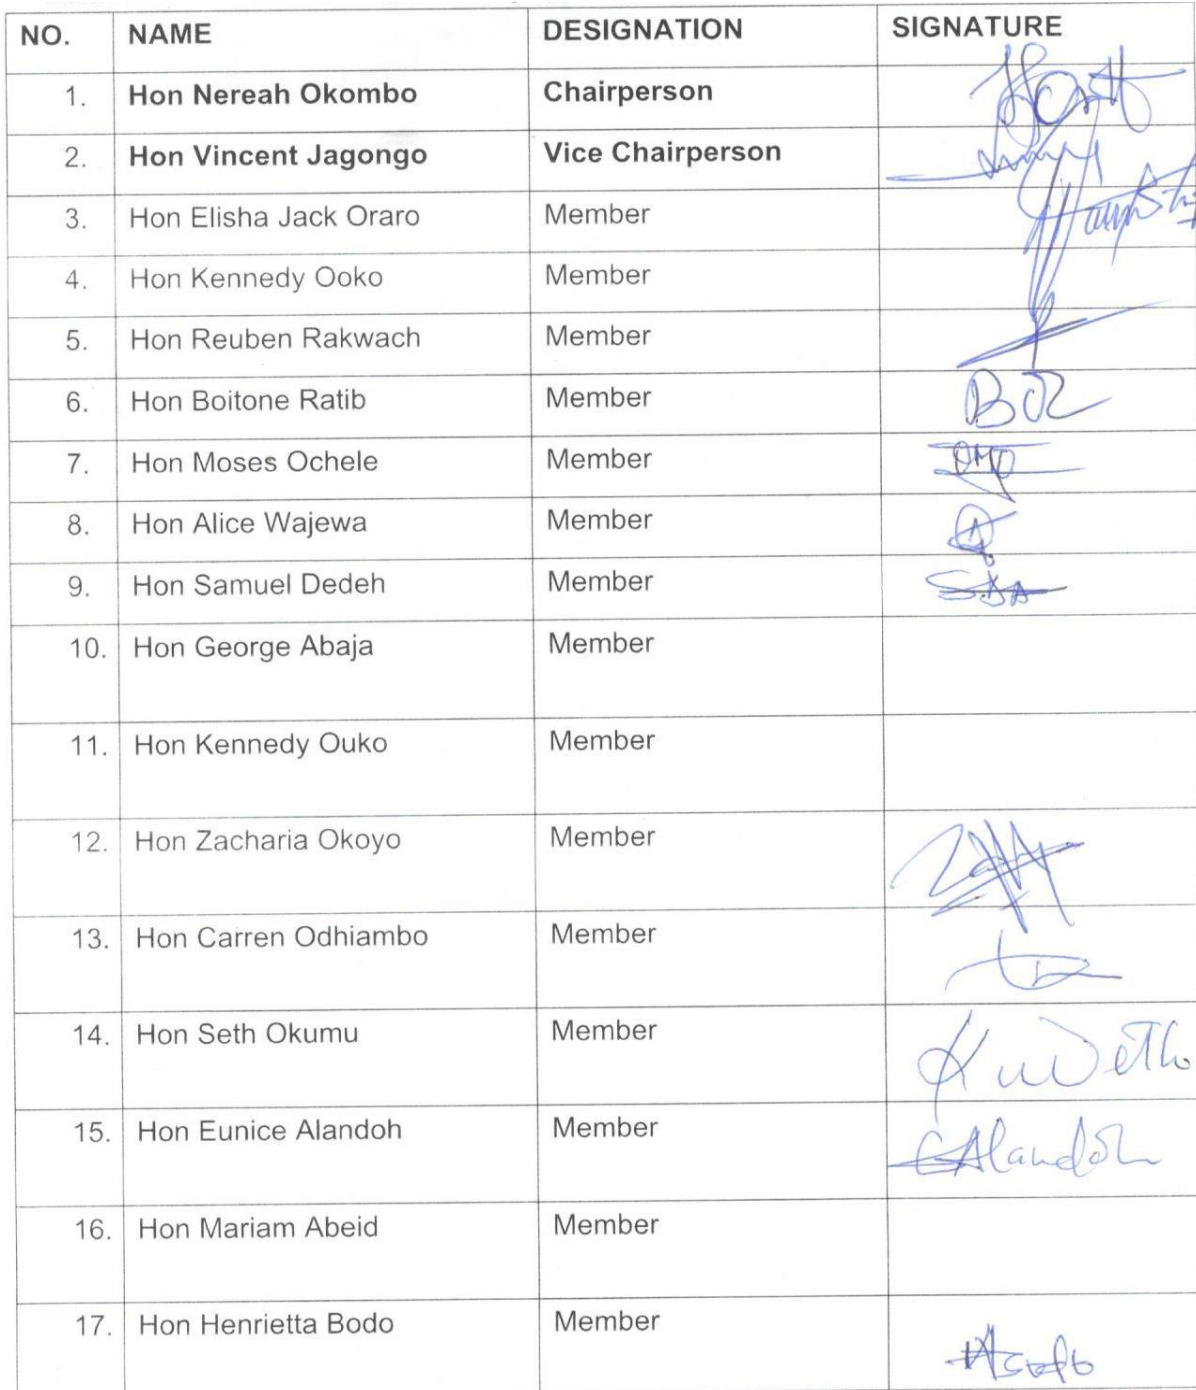 NO. NAME DESIGNATION SIGNATURE
1. Hon Nereah Okombo Chairperson
2. Hon Vincent Jagongo Vice Chairperson
3. Hon Elisha Jack Oraro Member
4. Hon Kennedy Ooko Member
5. Hon Reuben Rakwach Member
6. Hon Boitone Ratib Member
7. Hon Moses Ochele Member
8. Hon Alice Wajewa Member
9. Hon Samuel Dedeh Member
10. Hon George Abaja Member
11. Hon Kennedy Ouko Member
12. Hon Zacharia Okoyo Member
13. Hon Carren Odhiambo Member
14. Hon Seth Okumu Member
15. Hon Eunice Alandoh Member EAlandoh
16. Hon Mariam Abeid Member
17. Hon Henrietta Bodo Member